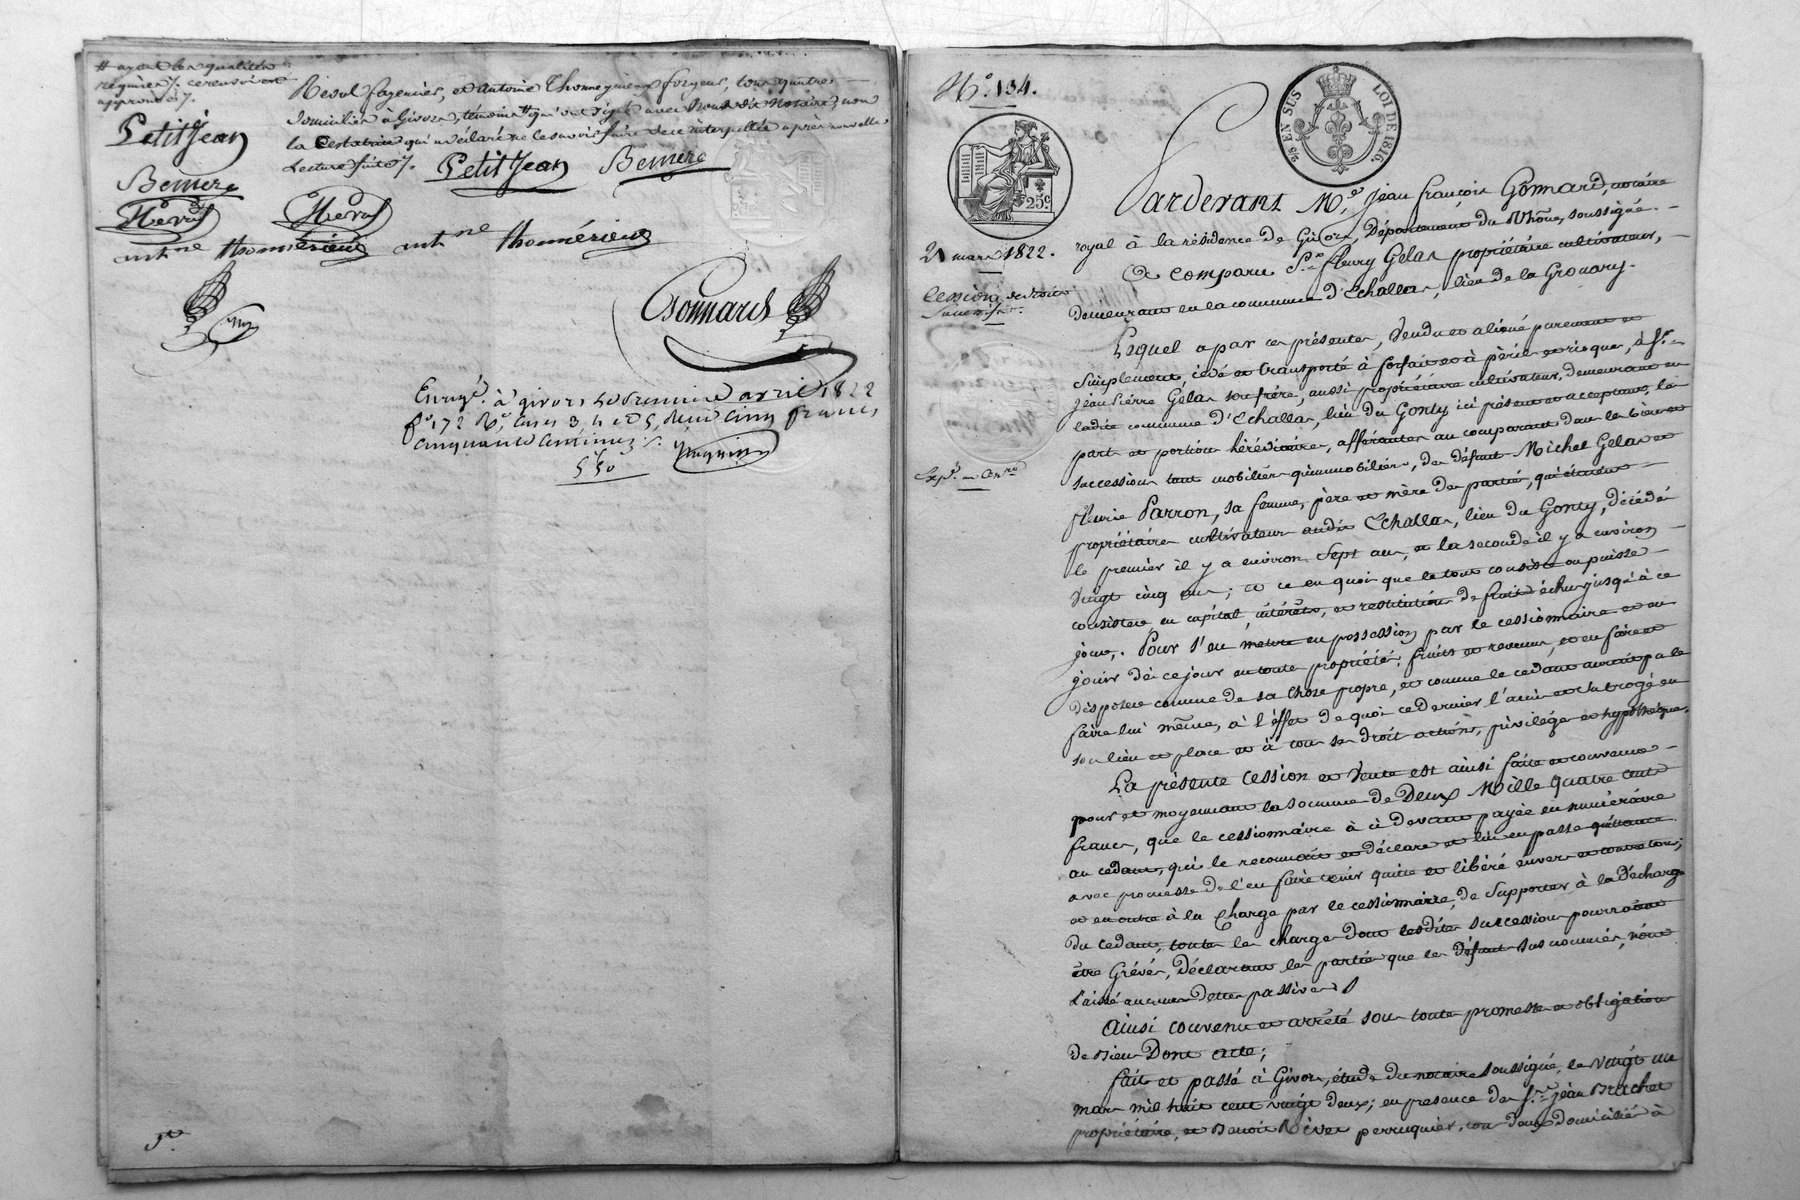 # ayant les qualités
requises /. ce renvoi est
approuvé /.
Petitjean
Bernere
Revol
ant.ne thomérieux
Revol fayencier, et antoine Thomeyrieux forgeur, tous quatre
domiciliés à Givors, témoins # qui ont signé avec Nous dit Notaire, non
la testatrice qui a déclaré ne le savoir faire de ce interpellée après nouvelle
Lecture faite /.
Petitjean Bernere
Revol
ant.ne thomérieux
Gonnard
Enreg.é à givors le premier avril 1822
f.o 172 R.o, cases 3, 4 et 5, Reçu cinq francs
cinquante centimes
5f 50c
N.o 134.
25c
5c EN SUS LOI DE 1816.
21 mars 1822.
Cession de droits
Successifs.
Pardevant M.e Jean françois Gonnard, notaire
royal à la résidence de Givors, Département du Rhône, soussigné.
A comparu S.r fleury Gelas propriétaire cultivateur,
demeurant en la commune d'Echallas, lieu de la Grouary.
Lequel a par ces présentes, Vendu et aliéné purement et
simplement, cédé et transporté à forfait et à péril et risques, à S.r
jean Pierre Gélas son frère, aussi propriétaire cultivateur, demeurant en
ladite commune d'Echallas, lieu du Gonty ici présent et acceptant, la
part et portion héréditaire, afférante au comparant dans les biens et
succession tant mobiliers qu'immobiliers, des défunts Michel Gelas et
fleurie Parron, sa femme, père et mère des parties, qui étaient
propriétaires cultivateurs audit Echallas, lieu du Gonty, décédés
le premier il y a environ Sept ans, et la seconde il y a environ
Vingt cinq ans; et ce en quoi que le tout consiste ou puisse
consister en capital, intérêts, et restitution de fruits échus jusqu'à ce
jour. Pour s'en mettre en possession par le cessionnaire et en
jouir dès ce jour en toute propriété, fruits et revenus, et en faire et
disposer comme de sa chose propre, et comme le cedant aurait pu le
faire lui même, à l'effet de quoi ce dernier l'a mis et subrogé en
son lieu et place et à tous ses droits actions, privilège et hypothèque.
La présente Cession et Vente est ainsi faite et convenue
pour et moyennant la somme de Deux Mille quatre cents
francs, que le cessionnaire à ci devant payée en numéraire
au cedant, qui le reconnait et déclare et lui en passe quittance
avec promesse de l'en faire tenir quitte et libéré envers et contre tous;
et en outre à la Charge par le cessionnaire, de Supporter à la Décharge
du cedant, toutes les charges dont lesdites successions pourraient
être Grévés, déclarant les parties que les défunts sus nommés, n'ont
laissé aucunes dettes passives
Ainsi convenu et arrêté sous toute promesse et obligation
de biens Dont acte;
fait et passé à Givors, étude du notaire soussigné, le Vingt un
mars mil huit cent vingt deux; en presence des S.rs jean Brachet
propriétaire, et Benoit Rivet perruquier, tous deux domiciliés à